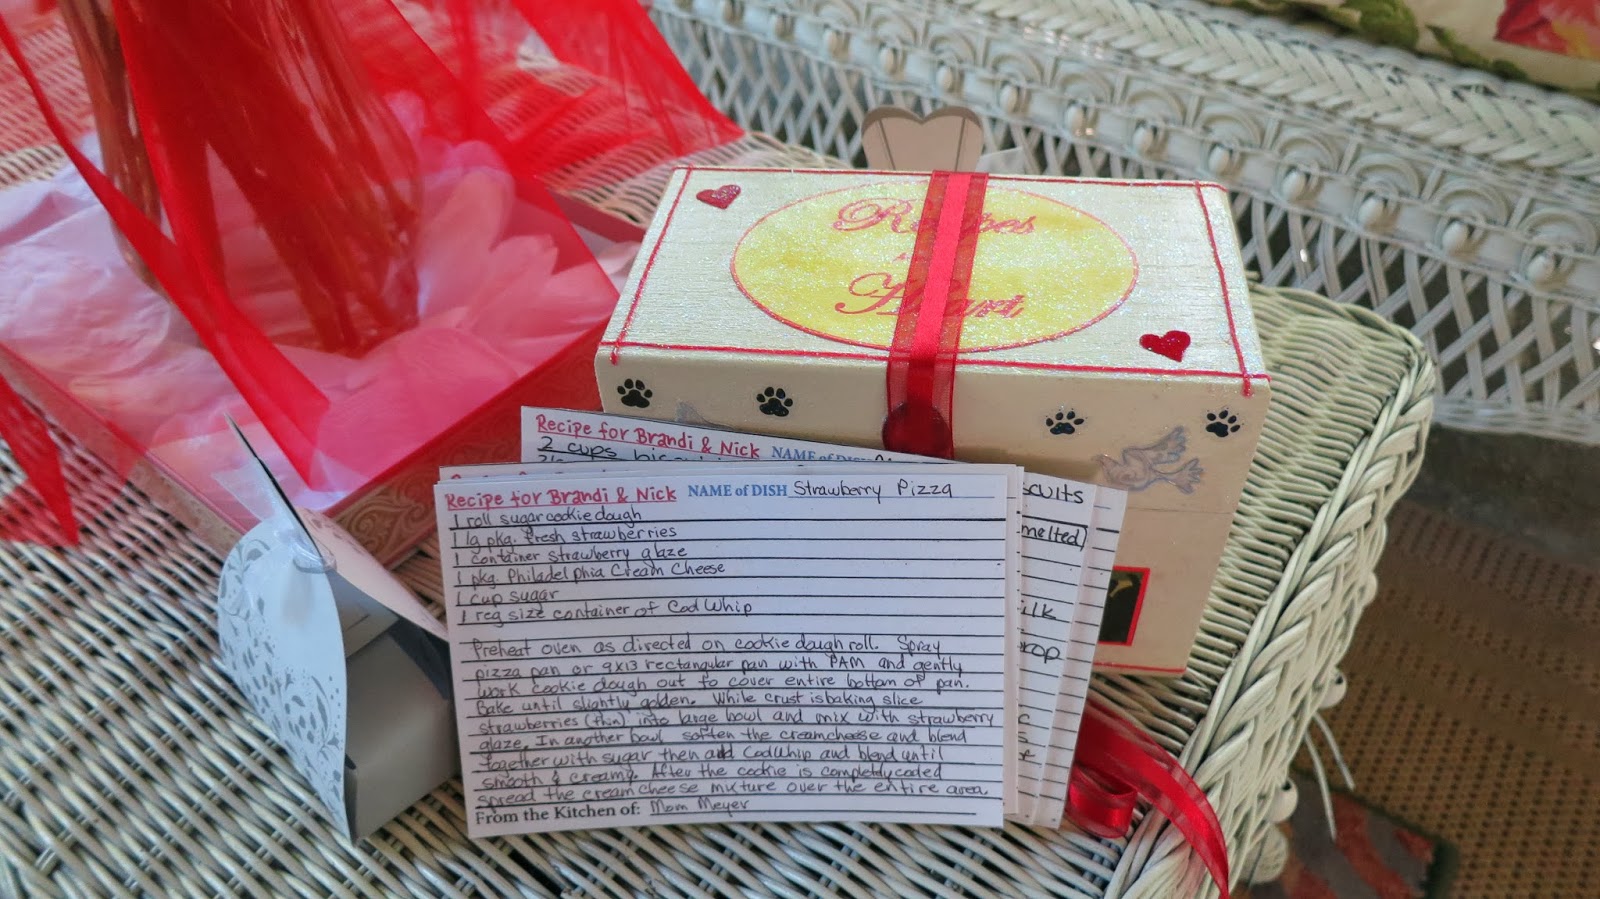 Recipes
Heart
Recipe for Brandi & Nick NAME of DISH
2 cups
Recipe for Brandi & Nick NAME of DISH Strawberry Pizza
1 roll sugar cookie dough
1 lg pkg. fresh strawberries
1 container strawberry glaze
1 pkg. Philadelphia Cream Cheese
1 cup sugar
1 reg size container of Cool Whip
Preheat oven as directed on cookie dough roll. Spray
pizza pan or 9x13 rectangular pan with PAM and gently
work cookie dough out to cover entire bottom of pan.
Bake until slightly golden. While crust is baking slice
strawberries (thin) into large bowl and mix with strawberry
glaze. In another bowl soften the creamcheese and blend
together with sugar then add CoolWhip and blend until
smooth & creamy. After the cookie is completely cooled
spread the creamcheese mixture over the entire area.
From the Kitchen of: Mom Meyer
scuits
melted)
ilk
rop